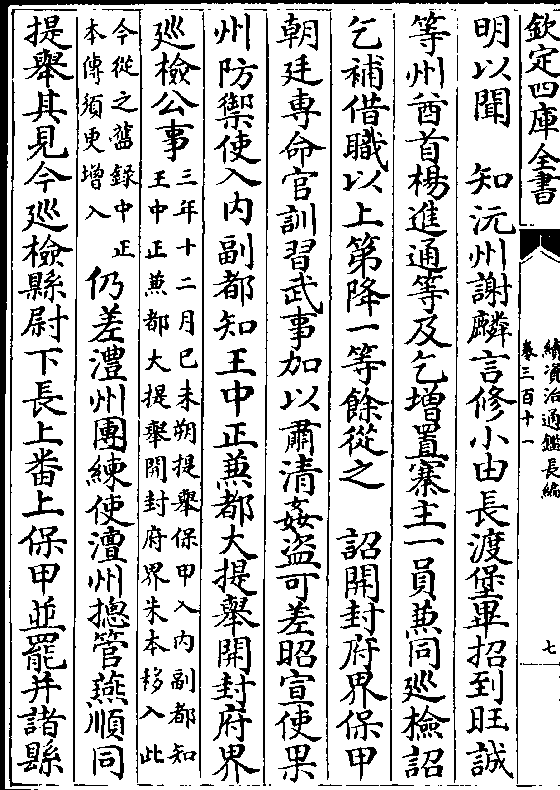 欽定四庫全書
續資治通鑑長編
卷三百十一
七
明以聞　知沅州謝麟言修小由長渡堡畢招到旺誠
等州酋首楊進通等及乞增置寨主一員兼同廵檢詔
乞補借職以上第降一等餘從之　詔開封府界保甲
朝廷専命官訓習武事加以肅清姦盜可差昭宣使果
州防禦使入内副都知王中正兼都大提舉開封府界
廵檢公事
三年十二月己未朔提舉保甲入内副都知
王中正兼都大提舉開封府界朱本移入此
今從之舊録中正
本傳須更增入
仍差澧州團練使澶州摠管燕順同
提舉其見今廵檢縣尉下長上畨上保甲並罷并諸縣